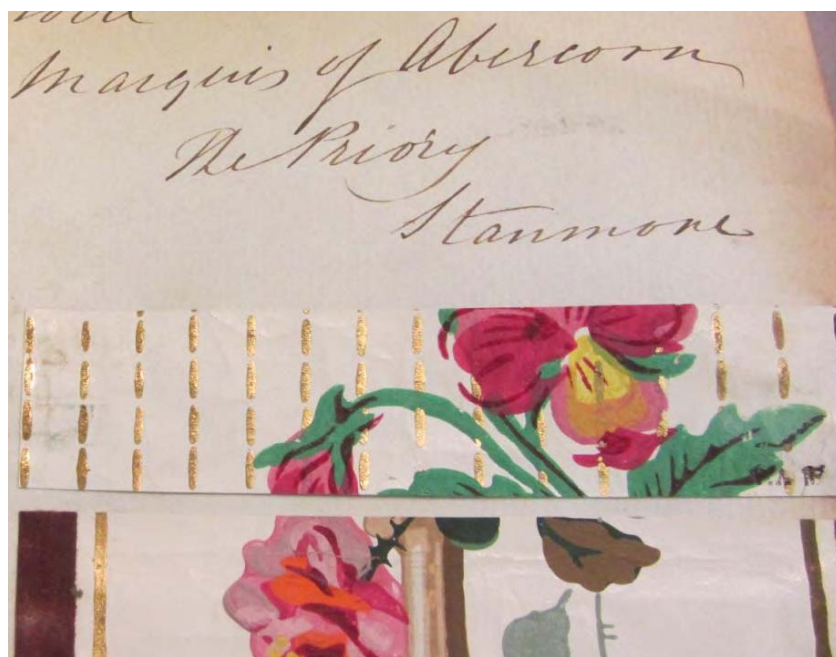 Marquis of Abercorn
The Priory
Stanmore